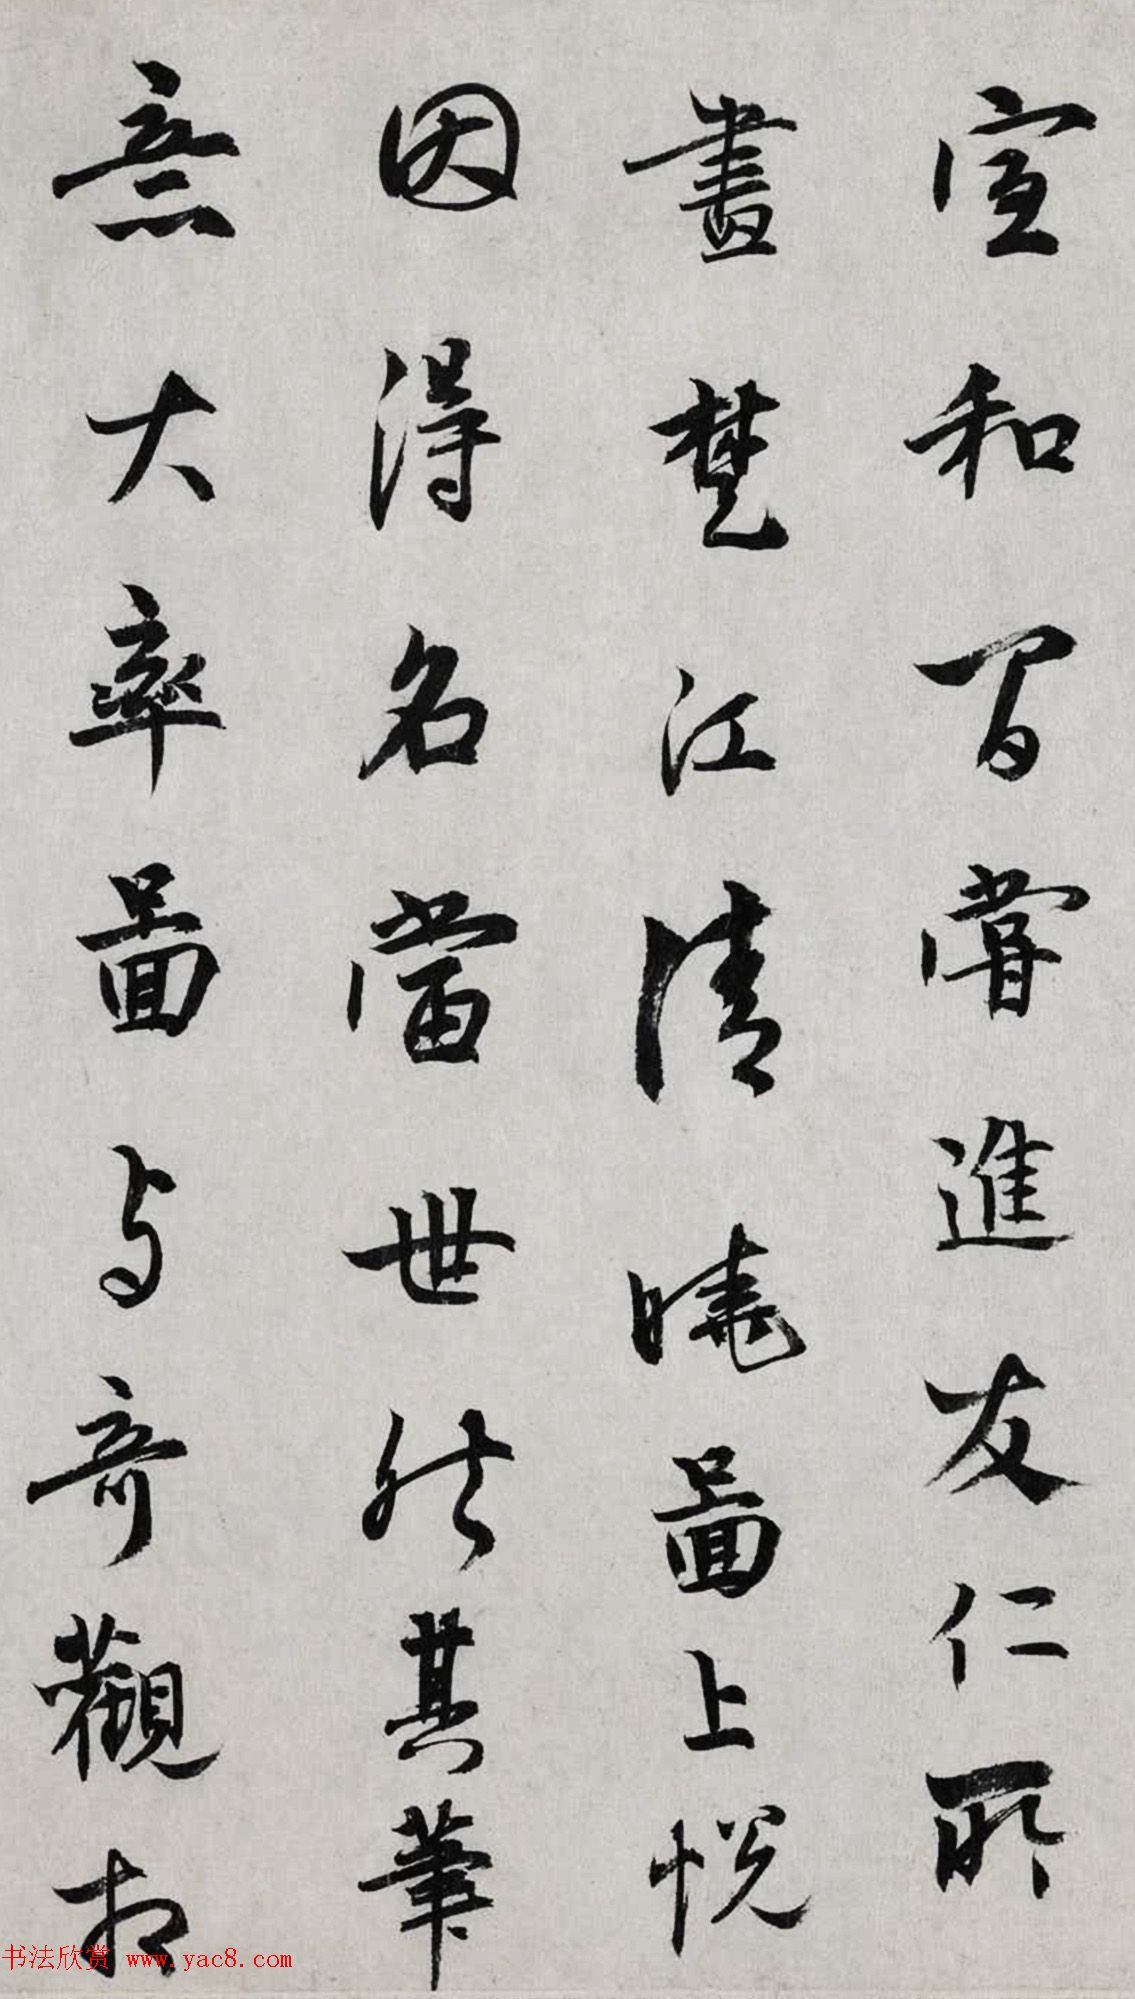 宣和间嘗進友仁所
畫楚江清曉圖上悅
因得名當世然其筆
意大率圖与奇觀相
书法欣赏 www.yac8.com